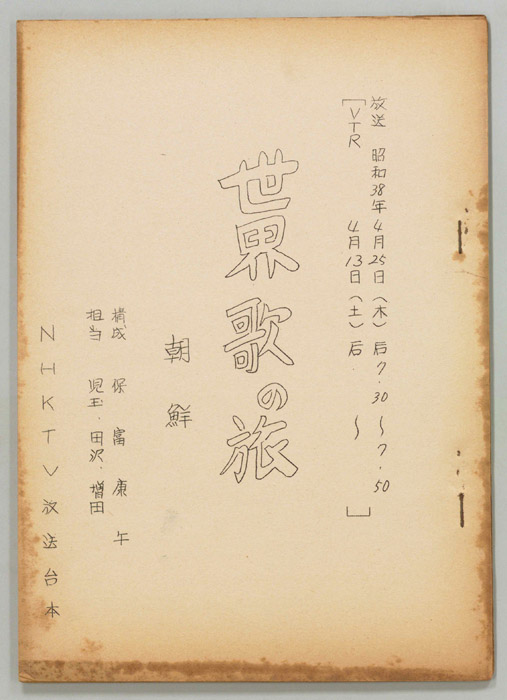 放送 昭和38年4月25日(木)后7.30〜7.50
[VTR 4月13日(土)后. 〜 ]
世界 歌の旅
朝鮮
構成 保富康午
担当 児玉・田沢・増田
NHKTV放送台本